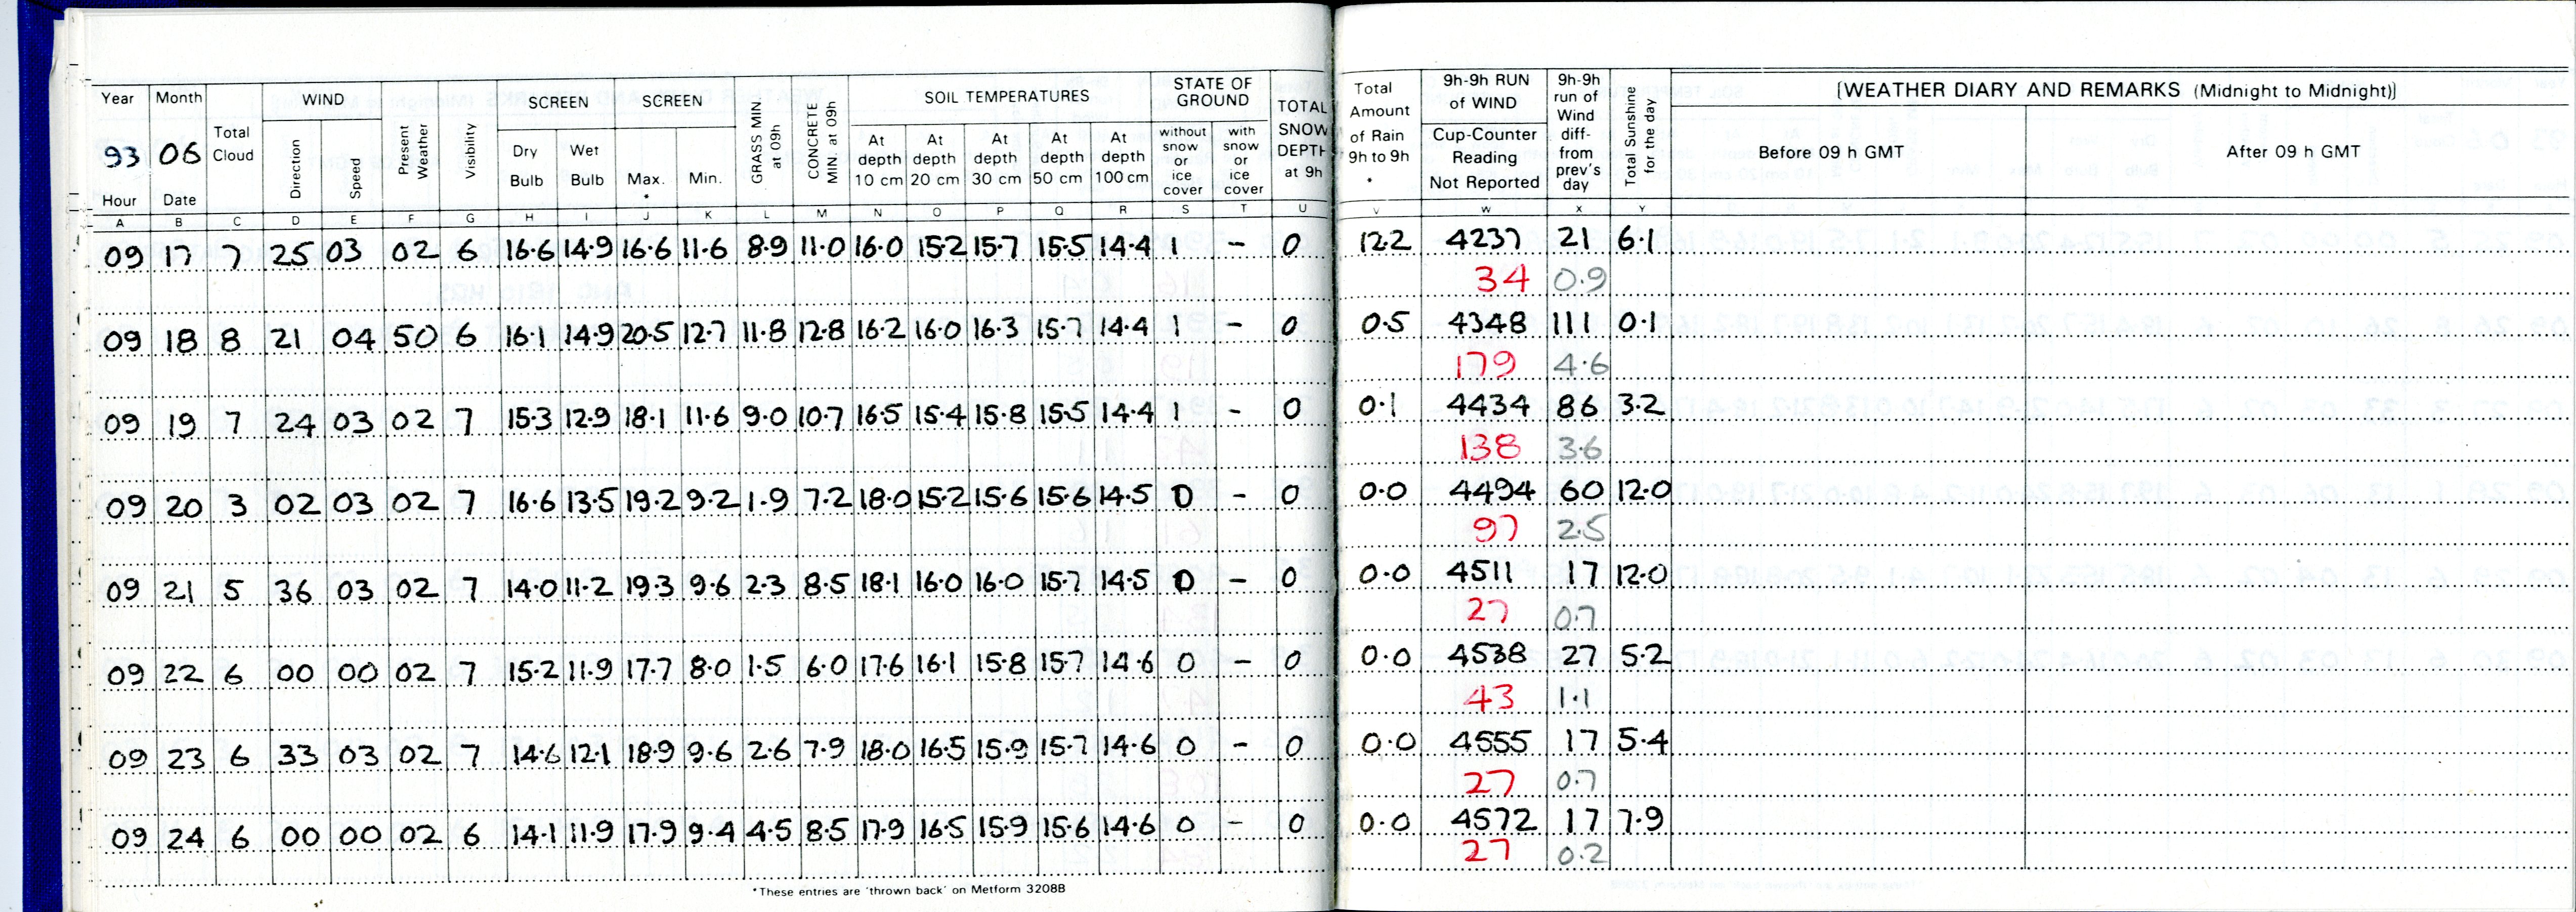 Year Month Total Cloud WIND Present Weather Visibility SCREEN SCREEN GRASS MIN. at 09h CONCRETE MIN. at 09h SOIL TEMPERATURES STATE OF GROUND TOTAL SNOW DEPTH at 9h Total Amount of Rain 9h to 9h * 9h-9h RUN of WIND 9h-9h run of Wind diff- from prev's day Total Sunshine for the day (WEATHER DIARY AND REMARKS (Midnight to Midnight))
93 06 Direction Speed Dry Bulb Wet Bulb Max. * Min. At depth 10 cm At depth 20 cm At depth 30 cm At depth 50 cm At depth 100 cm without snow or ice cover with snow or ice cover Cup-Counter Reading Not Reported Before 09 h GMT After 09 h GMT
Hour Date
A B C D E F G H I J K L M N O P Q R S T U V W X Y
09 17 7 25 03 02 6 16.6 14.9 16.6 11.6 8.9 11.0 16.0 15.2 15.7 15.5 14.4 1 - 0 12.2 4237 21 6.1
34 0.9
09 18 8 21 04 50 6 16.1 14.9 20.5 12.7 11.8 12.8 16.2 16.0 16.3 15.7 14.4 1 - 0 0.5 4348 111 0.1
179 4.6
09 19 7 24 03 02 7 15.3 12.9 18.1 11.6 9.0 10.7 16.5 15.4 15.8 15.5 14.4 1 - 0 0.1 4434 86 3.2
138 3.6
09 20 3 02 03 02 7 16.6 13.5 19.2 9.2 1.9 7.2 18.0 15.2 15.6 15.6 14.5 0 - 0 0.0 4494 60 12.0
97 2.5
09 21 5 36 03 02 7 14.0 11.2 19.3 9.6 2.3 8.5 18.1 16.0 16.0 15.7 14.5 0 - 0 0.0 4511 17 12.0
27 0.7
09 22 6 00 00 02 7 15.2 11.9 17.7 8.0 1.5 6.0 17.6 16.1 15.8 15.7 14.6 0 - 0 0.0 4538 27 5.2
43 1.1
09 23 6 33 03 02 7 14.6 12.1 18.9 9.6 2.6 7.9 18.0 16.5 15.9 15.7 14.6 0 - 0 0.0 4555 17 5.4
27 0.7
09 24 6 00 00 02 6 14.1 11.9 17.9 9.4 4.5 8.5 17.9 16.5 15.9 15.6 14.6 0 - 0 0.0 4572 17 7.9
27 0.2
*These entries are 'thrown back' on Metform 3208B